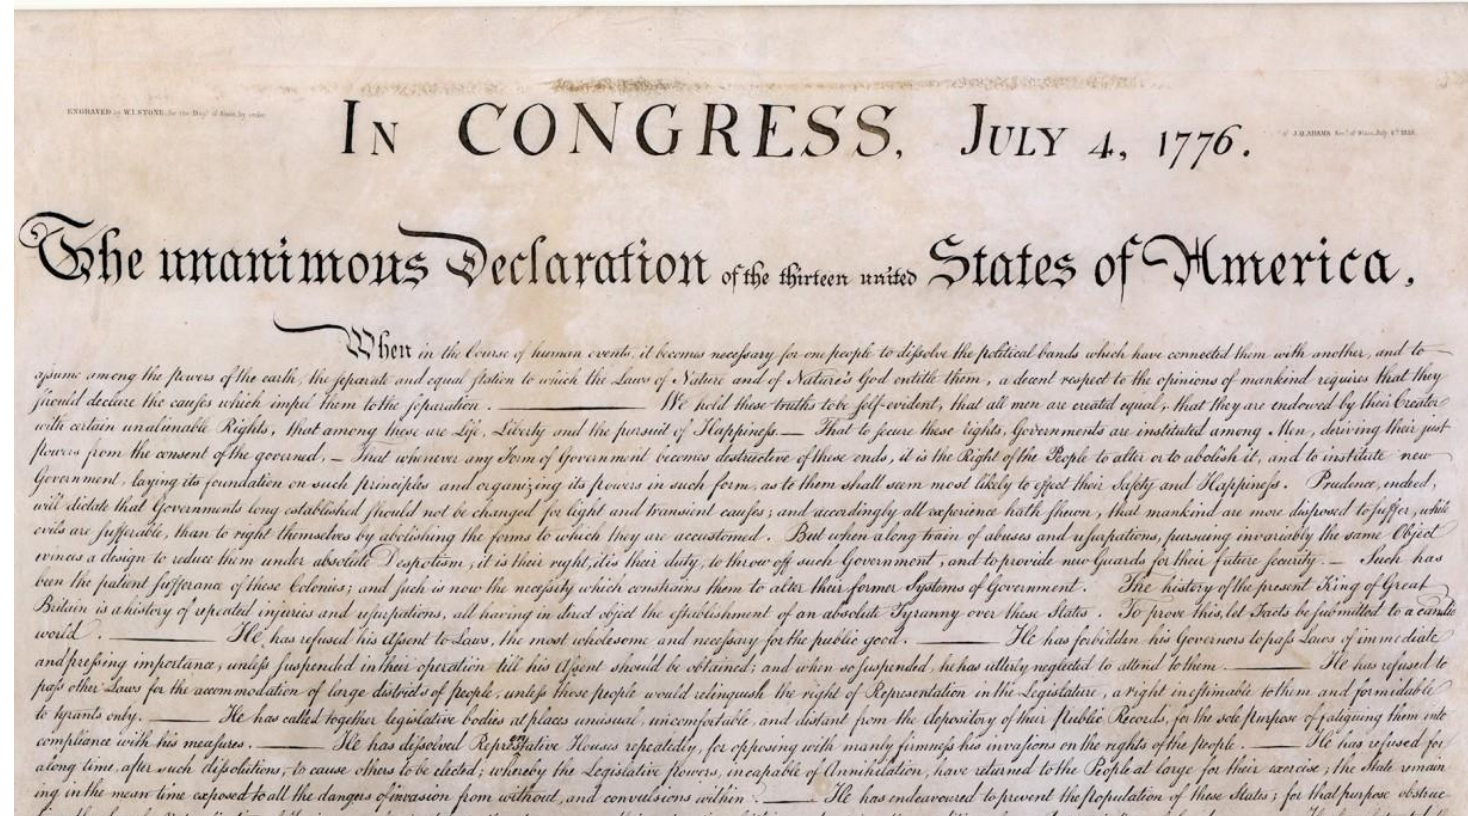 ENGRAVED by W.I.STONE, for the Dept. of State, by order
of J.Q.ADAMS Sec.t of State, July 4th 1823.
In CONGRESS, July 4, 1776.
The unanimous Declaration of the thirteen united States of America,
When in the Course of human events, it becomes necessary for one people to dissolve the political bands which have connected them with another, and to
assume among the powers of the earth, the separate and equal station to which the Laws of Nature and of Nature's God entitle them, a decent respect to the opinions of mankind requires that they
should declare the causes which impel them to the separation. ——— We hold these truths to be self-evident, that all men are created equal, that they are endowed by their Creator
with certain unalienable Rights, that among these are Life, Liberty and the pursuit of Happiness.— That to secure these rights, Governments are instituted among Men, deriving their just
powers from the consent of the governed, — That whenever any Form of Government becomes destructive of these ends, it is the Right of the People to alter or to abolish it, and to institute new
Government, laying its foundation on such principles and organizing its powers in such form, as to them shall seem most likely to effect their Safety and Happiness. Prudence, indeed,
will dictate that Governments long established should not be changed for light and transient causes; and accordingly all experience hath shewn, that mankind are more disposed to suffer, while
evils are sufferable, than to right themselves by abolishing the forms to which they are accustomed. But when a long train of abuses and usurpations, pursuing invariably the same Object
evinces a design to reduce them under absolute Despotism, it is their right, it is their duty, to throw off such Government, and to provide new Guards for their future security. — Such has
been the patient sufferance of these Colonies; and such is now the necessity which constrains them to alter their former Systems of Government. The history of the present King of Great
Britain is a history of repeated injuries and usurpations, all having in direct object the establishment of an absolute Tyranny over these States. To prove this, let Facts be submitted to a candid
world. ——— He has refused his Assent to Laws, the most wholesome and necessary for the public good. ——— He has forbidden his Governors to pass Laws of immediate
and pressing importance, unless suspended in their operation till his Assent should be obtained; and when so suspended, he has utterly neglected to attend to them. ——— He has refused to
pass other Laws for the accommodation of large districts of people, unless those people would relinquish the right of Representation in the Legislature, a right inestimable to them and formidable
to tyrants only. ——— He has called together legislative bodies at places unusual, uncomfortable, and distant from the depository of their public Records, for the sole purpose of fatiguing them into
compliance with his measures. ——— He has dissolved Representative Houses repeatedly, for opposing with manly firmness his invasions on the rights of the people. ——— He has refused for
a long time, after such dissolutions, to cause others to be elected; whereby the Legislative powers, incapable of Annihilation, have returned to the People at large for their exercise; the State remain
ing in the mean time exposed to all the dangers of invasion from without, and convulsions within. ——— He has endeavoured to prevent the population of these States; for that purpose obstruc-